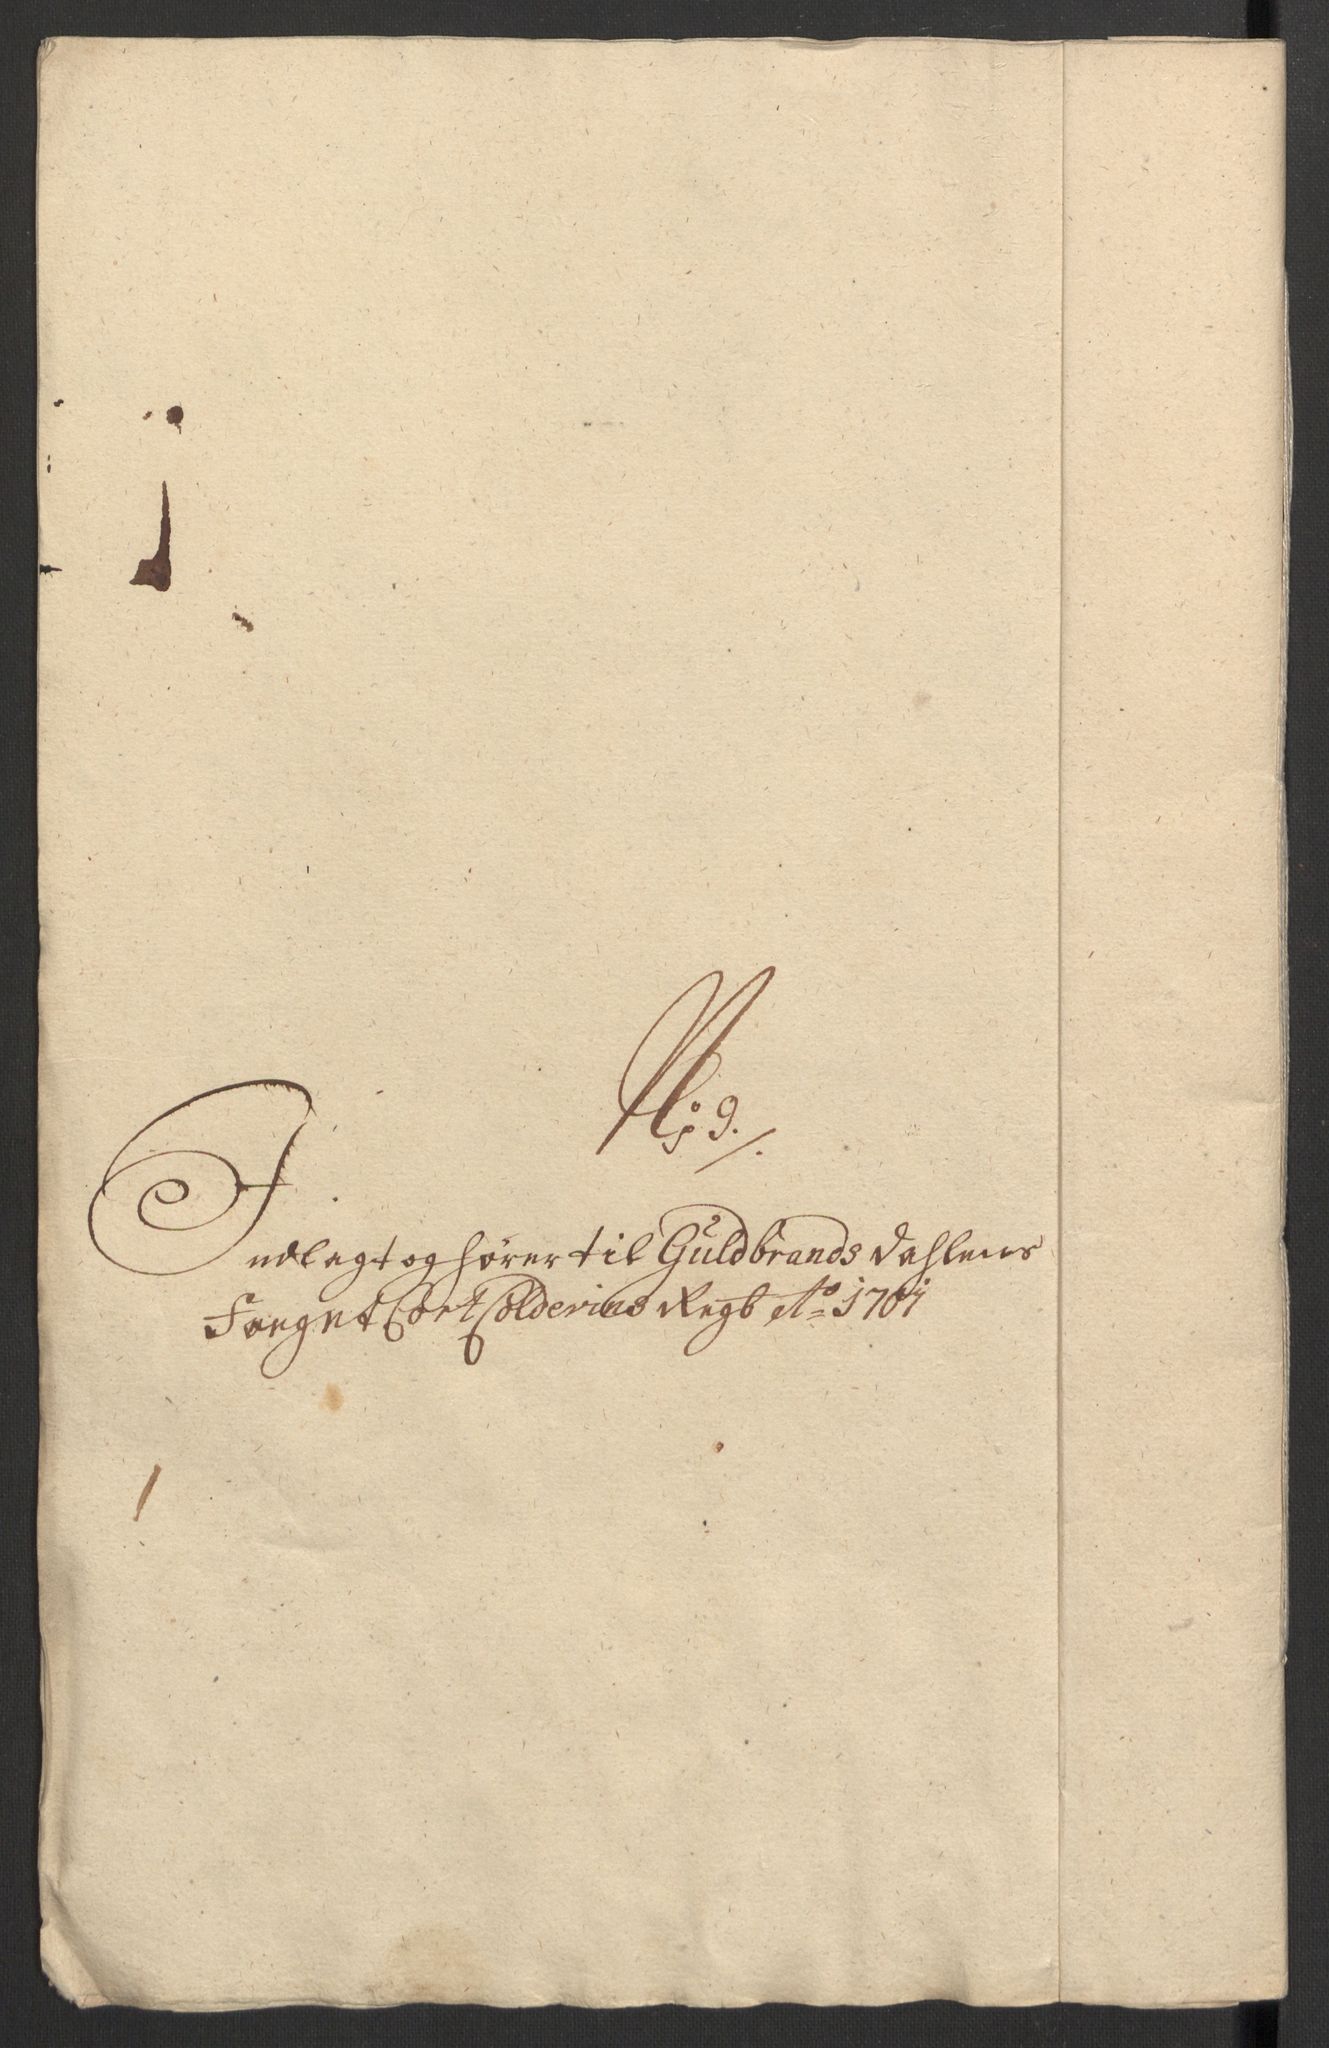 No: 9.
Indlagt og hører til Guldbrands dahlens
Fougt Cort Colderins Regb Ao 1701